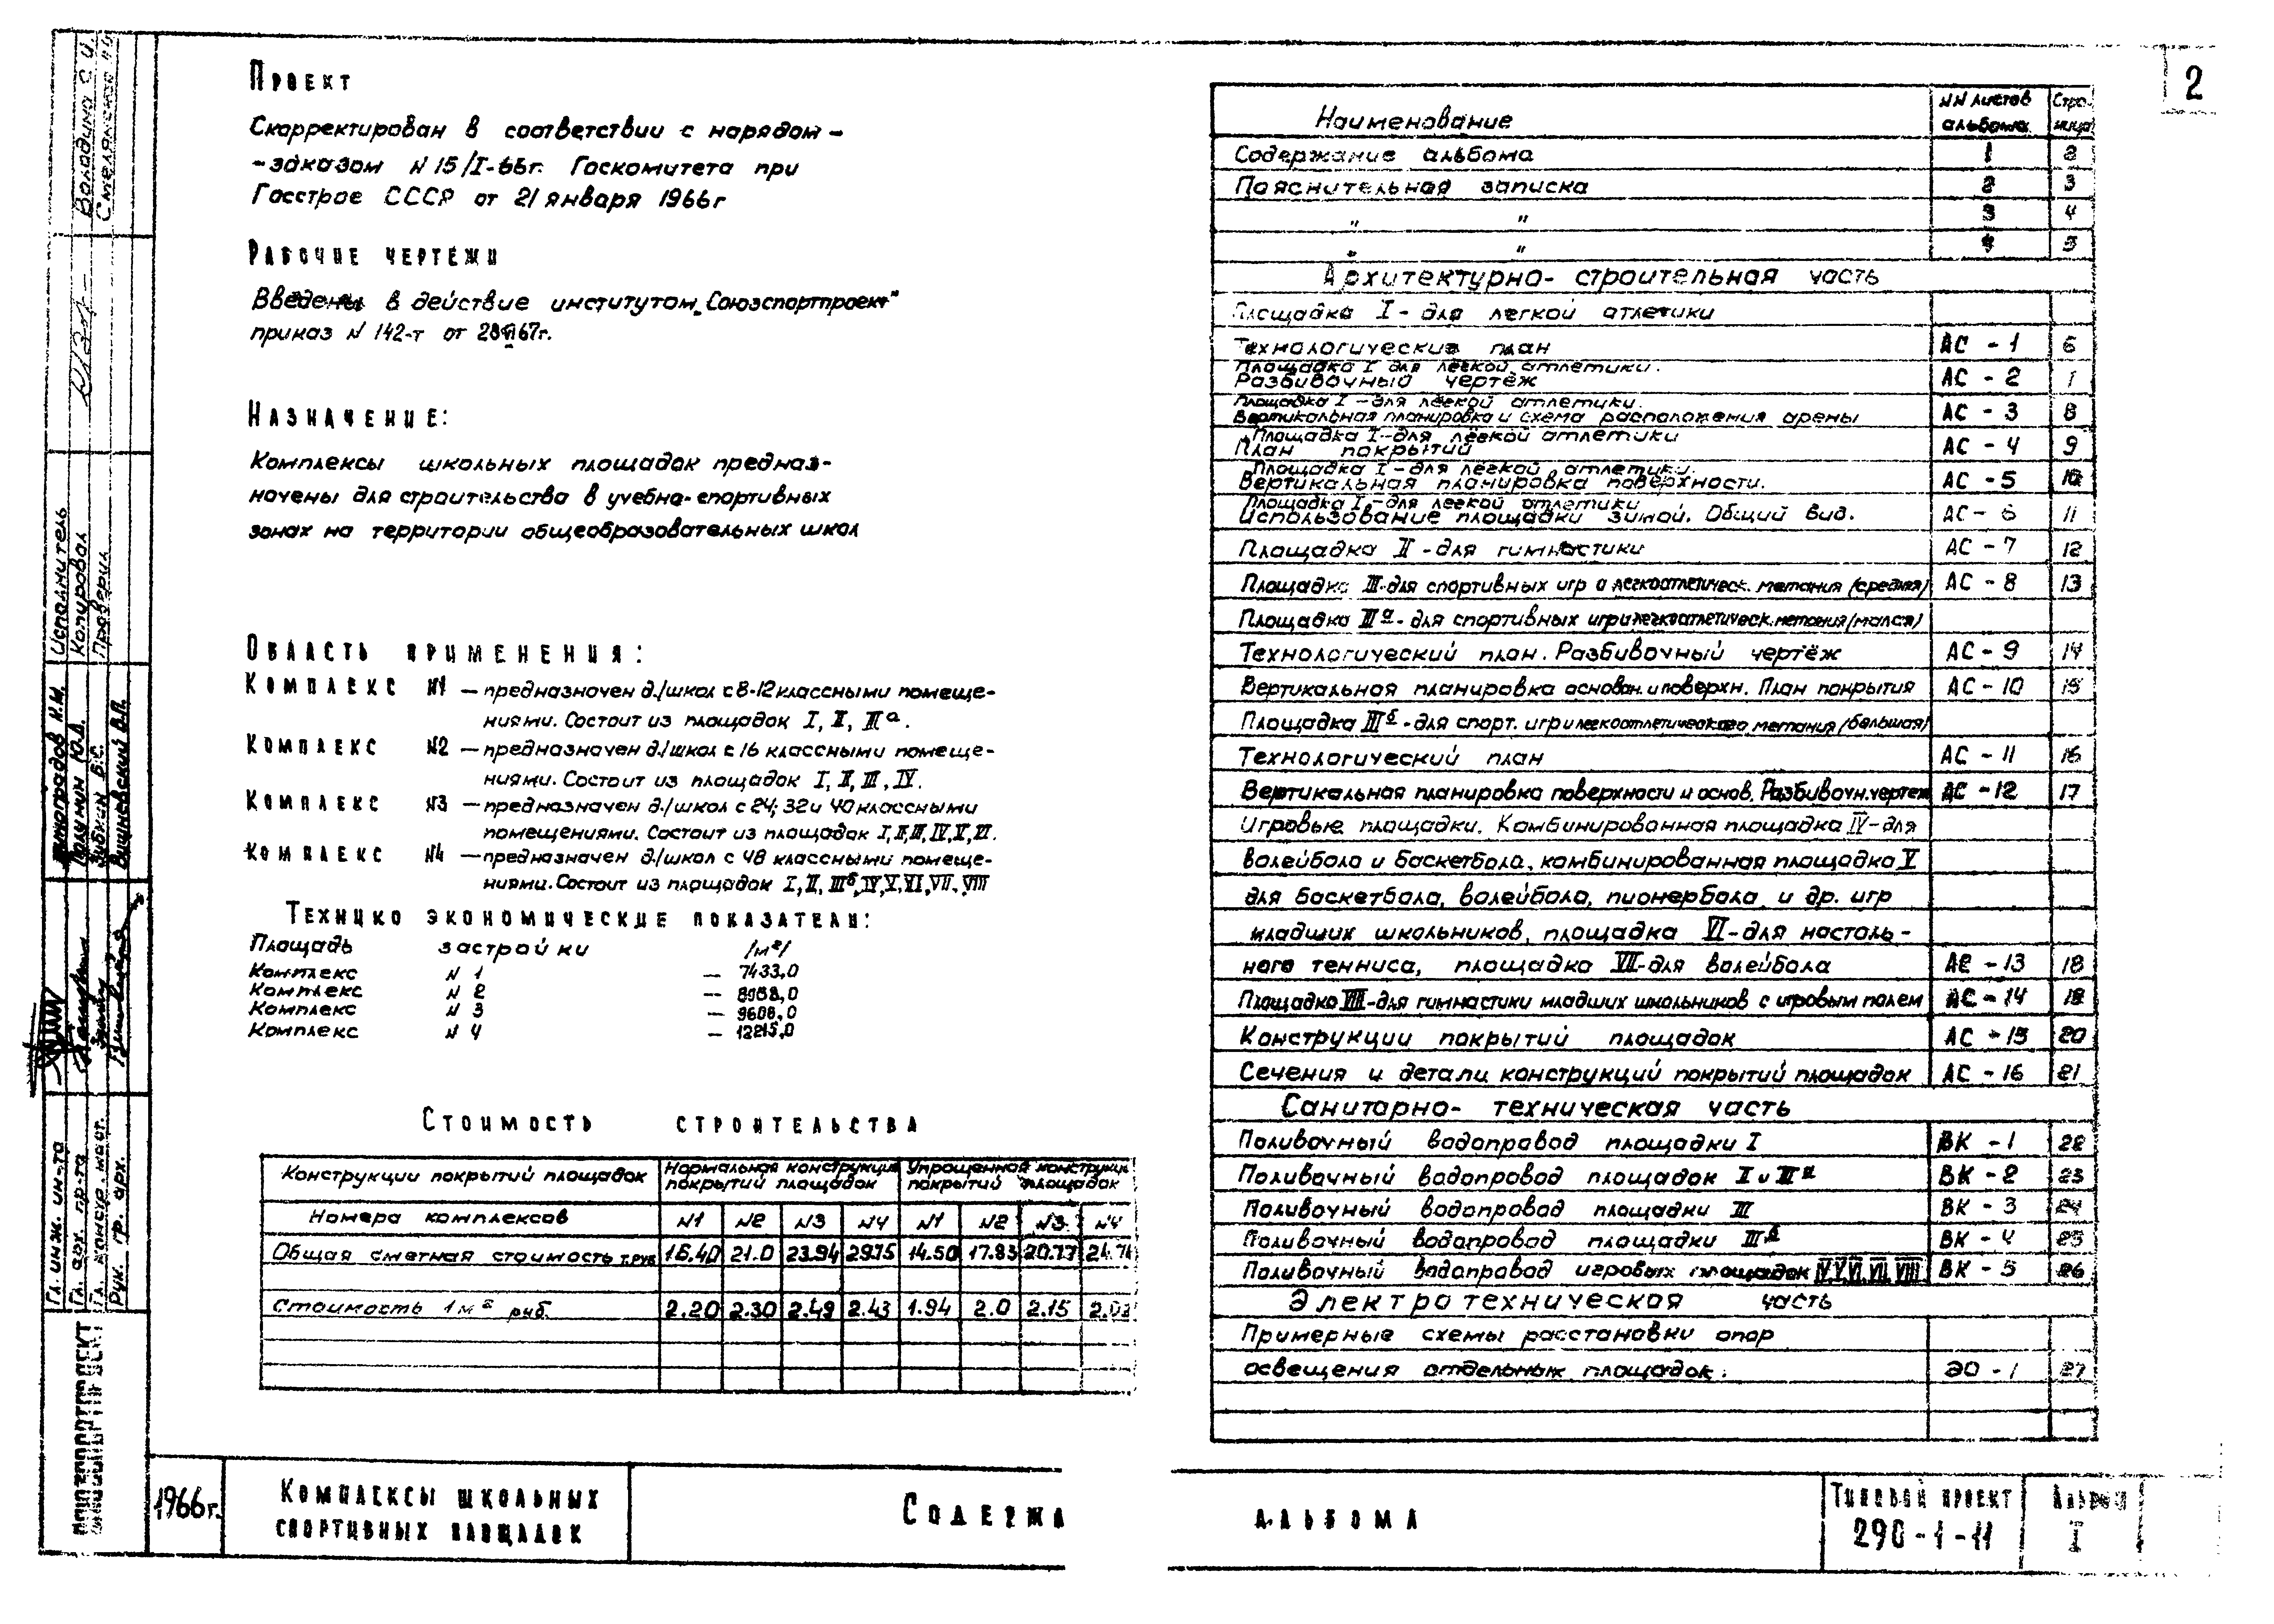 2
Проект
Скорректирован в соответствии с нарядом -
- заказом N 15/I-66г. Госкомитета при
Госстрое СССР от 21 января 1966г
Рабочие чертежи
Введены в действие институтом „Союзспортпроект"
приказ N 142-т от 28 VI 67г.
Назначение:
Комплексы школьных площадок предназ-
начены для строительства в учебно-спортивных
зонах на территории общеобразовательных школ
Область применения:
Комплекс N1 — предназначен д./школ с 8-12 классными помеще-
ниями. Состоит из площадок I, II, III а.
Комплекс N2 — предназначен д./школ с 16 классными помеще-
ниями. Состоит из площадок I, II, III, IV.
Комплекс N3 — предназначен д./школ с 24; 32 и 40 классными
помещениями. Состоит из площадок I, II, III, IV, V, VI.
Комплекс N4 — предназначен д./школ с 48 классными помеще-
ниями. Состоит из площадок I, II, III б, IV, V, VI, VII, VIII
Технико экономические показатели:
Площадь застройки /м²/
Комплекс N 1 — 7433,0
Комплекс N 2 —
Комплекс N 3 — 9608,0
Комплекс N 4 — 12215,0
Стоимость строительства
Конструкции покрытий площадок Нормальная конструкция покрытий площадок Упрощенная конструкци покрытий площадок
Номера комплексов N1 N2 N3 N4 N1 N2 N3 N4
Общая сметная стоимость т.руб 16.40 21.0 23.94 29.75 14.50 17.83 20.77
Стоимость 1 м² руб. 2.20 2.30 2.49 2.43 1.94 2.0 2.15
Наименование NN листов альбома Стра-ница
Содержание альбома 1 2
Пояснительная записка 2 3
" " 3 4
" " 4 5
Архитектурно-строительная часть
Площадка I - для легкой атлетики
Технологические план АС - 1 6
Площадка I для лёгкой атлетики.
Разбивочный чертёж АС - 2
Площадка I - для лёгкой атлетики.
Вертикальная планировка и схема расположения арены АС - 3 8
Площадка I - для лёгкой атлетики
План покрытий АС - 4 9
Площадка I - для лёгкой атлетики.
Вертикальная планировка поверхности. АС - 5 10
Площадка I - для легкой атлетики
Использование площадки зимой. Общий вид. АС - 6 11
Площадка II - для гимнастики АС - 7 12
Площадка III - для спортивных игр и легкоатлетическ. метания /средняя/ АС - 8 13
Площадка III а - для спортивных игр и легкоатлетическ. метания /малая/
Технологический план. Разбивочный чертёж АС - 9 14
Вертикальная планировка основан. и поверхн. План покрытия АС - 10 15
Площадка III б - для спорт. игр и легкоатлетического метания /большая/
Технологический план АС - 11 16
Вертикальная планировка поверхности и основ. Разбивочн. чертеж АС - 12 17
Игровые площадки. Комбинированная площадка IV - для
волейбола и баскетбола, комбинированная площадка V
для баскетбола, волейбола, пионербола, и др. игр
младших школьников, площадка VI - для настоль-
ного тенниса, площадка VII - для волейбола АС - 13 18
Площадка VIII - для гимнастики младших школьников с игровым полем АС - 14 19
Конструкции покрытий площадок АС - 15 20
Сечения и детали конструкций покрытий площадок АС - 16 21
Санитарно-техническая часть
Поливочный водопровод площадки I ВК - 1 22
Поливочный водопровод площадок II и III а ВК - 2 23
Поливочный водопровод площадки III ВК - 3 24
Поливочный водопровод площадки III б ВК - 4 25
Поливочный водопровод игровых площадок IV, V, VI, VII, VIII ВК - 5 26
Электротехническая часть
Примерные схемы расстановки опор
освещения отдельных площадок. ЭО - 1 27
Исполнитель
Копировал
Проверил
Полунин Ю.Д.
Зыбкин Б.С.
Вишневский В.П.
Гл. инж. ин-та
Гл. арх. пр-та
Гл. констр. маст.
Рук. гр. арх.
1966г.
Комплексы школьных
спортивных площадок
Содержа
альбома
Типовой проект
290-1-11
Альбом
I